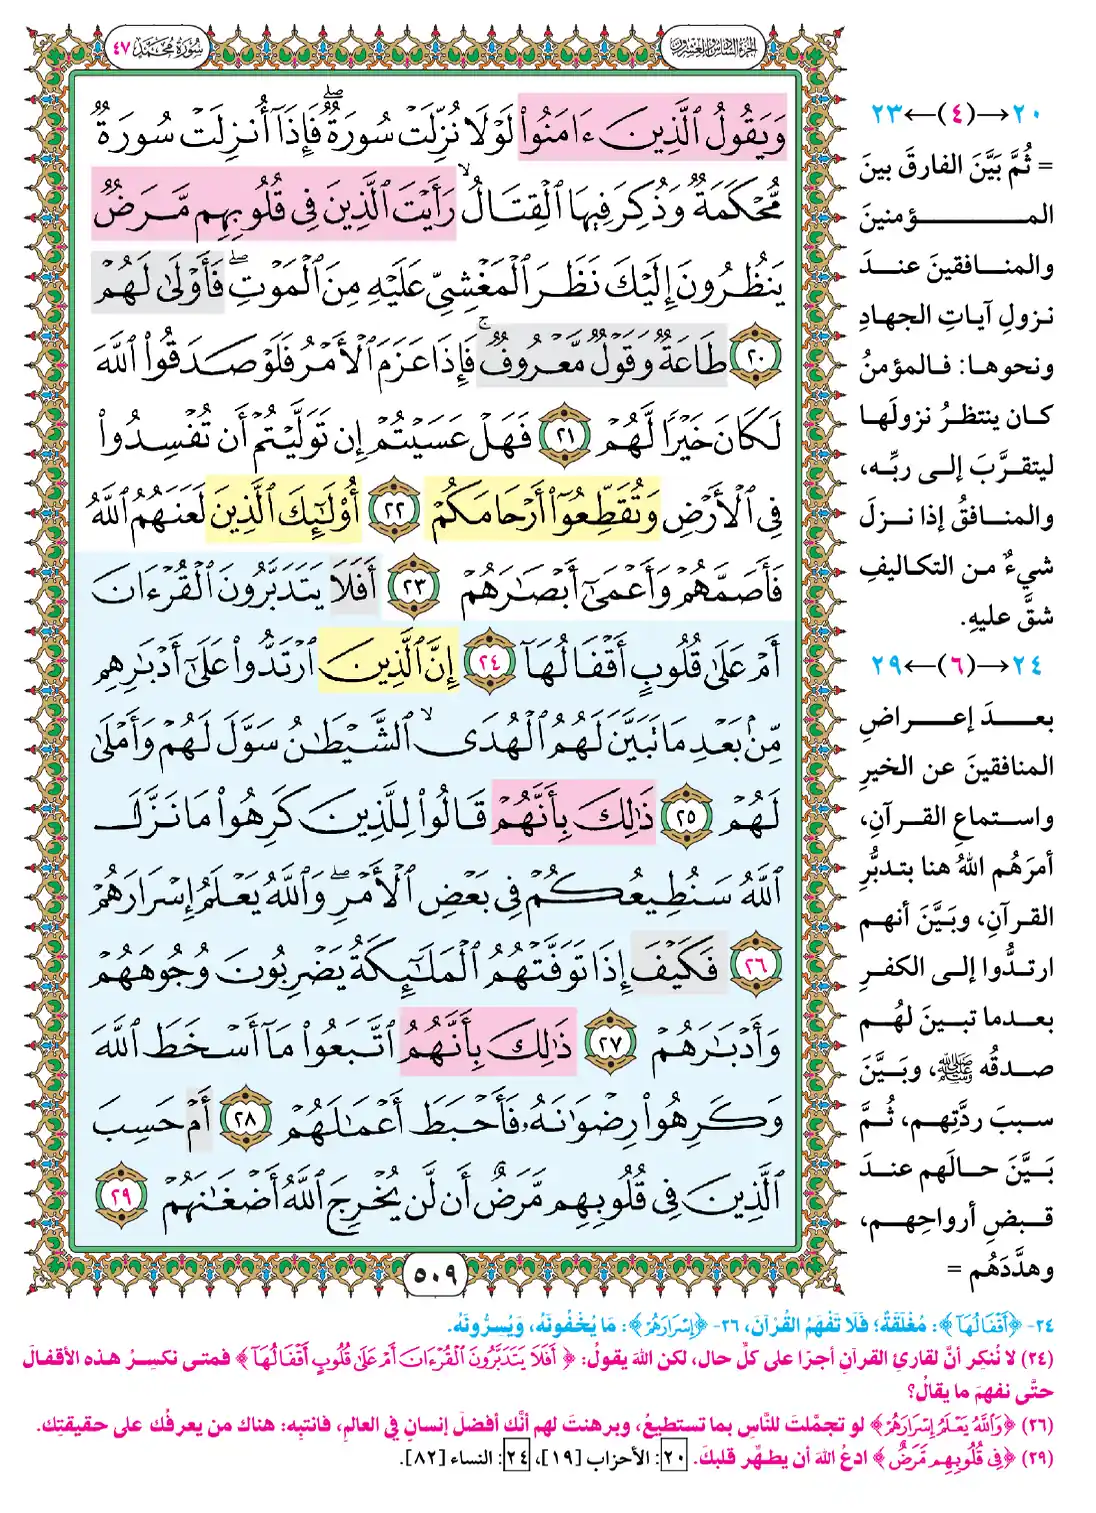 الجزء السادس والعشرون
سورة محمد ٤٧
وَيَقُولُ ٱلَّذِينَ ءَامَنُوا۟ لَوْلَا نُزِّلَتْ سُورَةٌ ۖ فَإِذَآ أُنزِلَتْ سُورَةٌ
مُّحْكَمَةٌ وَذُكِرَ فِيهَا ٱلْقِتَالُ ۙ رَأَيْتَ ٱلَّذِينَ فِى قُلُوبِهِم مَّرَضٌ
يَنظُرُونَ إِلَيْكَ نَظَرَ ٱلْمَغْشِىِّ عَلَيْهِ مِنَ ٱلْمَوْتِ ۖ فَأَوْلَىٰ لَهُمْ
٢٠ طَاعَةٌ وَقَوْلٌ مَّعْرُوفٌ ۚ فَإِذَا عَزَمَ ٱلْأَمْرُ فَلَوْ صَدَقُوا۟ ٱللَّهَ
لَكَانَ خَيْرًا لَّهُمْ ٢١ فَهَلْ عَسَيْتُمْ إِن تَوَلَّيْتُمْ أَن تُفْسِدُوا۟
فِى ٱلْأَرْضِ وَتُقَطِّعُوٓا۟ أَرْحَامَكُمْ ٢٢ أُو۟لَٰٓئِكَ ٱلَّذِينَ لَعَنَهُمُ ٱللَّهُ
فَأَصَمَّهُمْ وَأَعْمَىٰٓ أَبْصَٰرَهُمْ ٢٣ أَفَلَا يَتَدَبَّرُونَ ٱلْقُرْءَانَ
أَمْ عَلَىٰ قُلُوبٍ أَقْفَالُهَآ ٢٤ إِنَّ ٱلَّذِينَ ٱرْتَدُّوا۟ عَلَىٰٓ أَدْبَٰرِهِم
مِّنۢ بَعْدِ مَا تَبَيَّنَ لَهُمُ ٱلْهُدَى ۙ ٱلشَّيْطَٰنُ سَوَّلَ لَهُمْ وَأَمْلَىٰ
لَهُمْ ٢٥ ذَٰلِكَ بِأَنَّهُمْ قَالُوا۟ لِلَّذِينَ كَرِهُوا۟ مَا نَزَّلَ
ٱللَّهُ سَنُطِيعُكُمْ فِى بَعْضِ ٱلْأَمْرِ ۖ وَٱللَّهُ يَعْلَمُ إِسْرَارَهُمْ
٢٦ فَكَيْفَ إِذَا تَوَفَّتْهُمُ ٱلْمَلَٰٓئِكَةُ يَضْرِبُونَ وُجُوهَهُمْ
وَأَدْبَٰرَهُمْ ٢٧ ذَٰلِكَ بِأَنَّهُمُ ٱتَّبَعُوا۟ مَآ أَسْخَطَ ٱللَّهَ
وَكَرِهُوا۟ رِضْوَٰنَهُۥ فَأَحْبَطَ أَعْمَٰلَهُمْ ٢٨ أَمْ حَسِبَ
ٱلَّذِينَ فِى قُلُوبِهِم مَّرَضٌ أَن لَّن يُخْرِجَ ٱللَّهُ أَضْغَٰنَهُمْ ٢٩
٥٠٩
٢٠→(٤)←٢٣
= ثُمَّ بَيَّنَ الفارقَ بينَ
المؤمنينَ
والمنافقينَ عندَ
نزولِ آياتِ الجهادِ
ونحوها: فالمؤمنُ
كان ينتظرُ نزولَها
ليتقرَّبَ إلى ربِّه،
والمنافقُ إذا نزلَ
شيءٌ من التكاليفِ
شقَّ عليهِ.
٢٤→(٦)←٢٩
بعدَ إعراضِ
المنافقينَ عن الخيرِ
واستماعِ القرآنِ،
أمرَهُم اللهُ هنا بتدبُّرِ
القرآنِ، وبَيَّنَ أنهم
ارتدُّوا إلى الكفرِ
بعدما تبينَ لهُم
صدقُه ﷺ، وبَيَّنَ
سببَ ردَّتِهم، ثُمَّ
بَيَّنَ حالَهم عندَ
قبضِ أرواحِهم،
وهدَّدَهُم =
٢٤- ﴿أَقْفَالُهَآ﴾: مُغْلَقَةٌ؛ فَلَا تَفْهَمُ القُرْآنَ، ٢٦- ﴿إِسْرَارَهُمْ﴾: مَا يُخْفُونَهُ، وَيُسِرُّونَهُ.
(٢٤) لا نُنكِر أنَّ لقارئِ القرآنِ أجرًا على كلِّ حال، لكن اللهَ يقولُ: ﴿أَفَلَا يَتَدَبَّرُونَ ٱلْقُرْءَانَ أَمْ عَلَىٰ قُلُوبٍ أَقْفَالُهَآ﴾ فمتى نكسِرُ هذه الأقفالَ
حتَّى نفهمَ ما يقالُ؟
(٢٦) ﴿وَٱللَّهُ يَعْلَمُ إِسْرَارَهُمْ﴾ لو تجمَّلتَ للنَّاسِ بما تستطيعُ، وبرهنتَ لهم أنَّك أفضلَ إنسانٍ في العالمِ، فانتبِه: هناك من يعرفُك على حقيقتِك.
(٢٩) ﴿فِى قُلُوبِهِم مَّرَضٌ﴾ ادعُ اللهَ أن يطهِّر قلبكَ. ٢٠: الأحزاب [١٩]، ٢٤: النساء [٨٢].